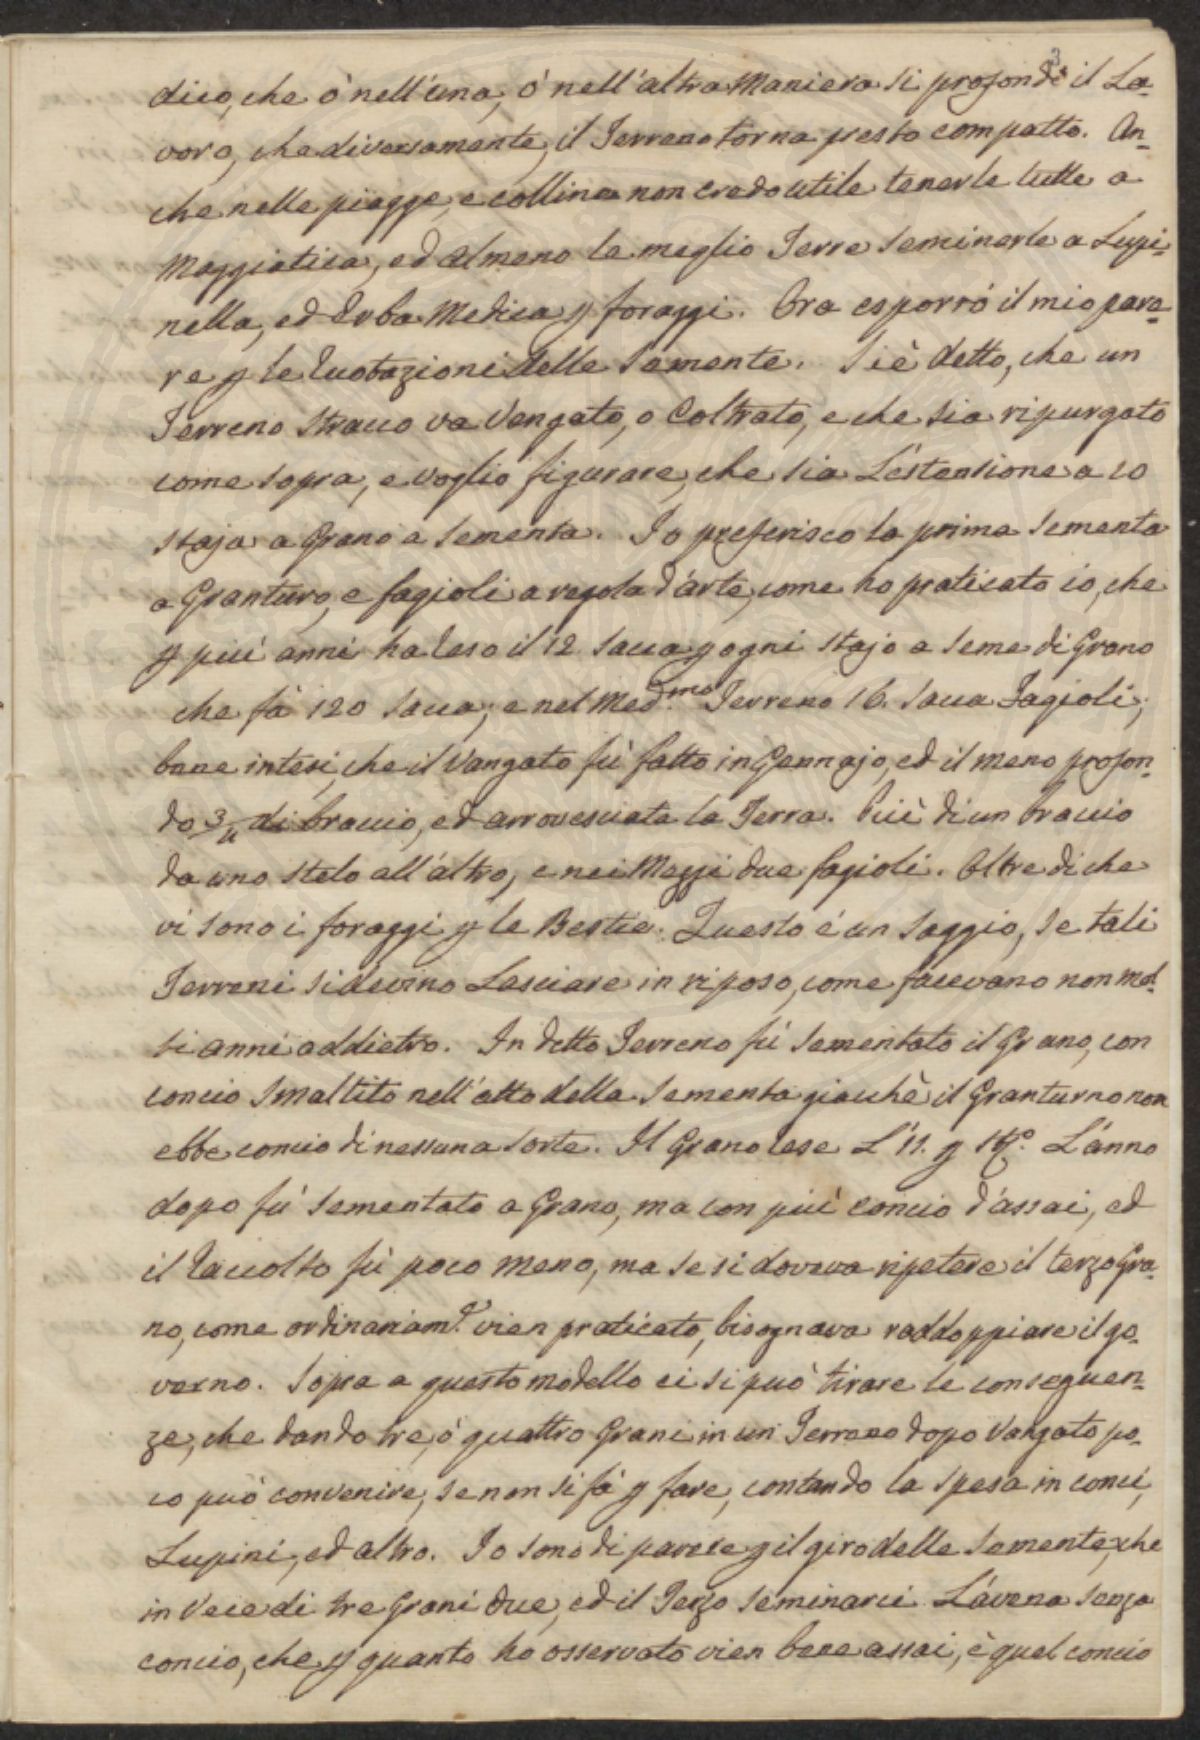 3
dico, che ò nell'una, ò nell'altra Maniera si profondi il La-
voro, che diversamente, il Terreno torna presto compatto. An-
che nelle piagge, e colline non credo utile tenerle tutte a
Maggiatica, ed almeno le meglio Terre seminarle a Lupi-
nella, ed Erba Medica p foraggi. Ora esporrò il mio pare-
re p le Ruotazioni delle Semente. Si è detto, che un
Terreno stracco va Vangato, o Coltrato, e che sia ripurgato
come sopra, e voglio figurare, che sia L'estensione a 10
staja a Grano a Sementa. Io preferisco la prima Sementa
a Granturco, e fagioli a regola d'arte, come ho praticato io, che
p più anni ha reso il 12 Sacca p ogni stajo a Seme di Grano
che fà 120 Sacca, e nel Med.mo Terreno 16. Sacca Fagioli;
bene intesi, che il Vangato fù fatto in Gennajo, ed il meno profon-
do 3/4 di braccio, ed arrovesciata la Terra. Più di un braccio
da uno stelo all'altro, e nei Mezzi due fagioli. Oltre di che
vi sono i foraggi p le Bestie. Questo è un Saggio, se tali
Terreni si devino Lasciare in riposo, come facevano non mol-
ti anni addietro. In detto Terreno fù Sementato il Grano, con
concio Smaltito nell'atto della Sementa giacchè il Granturno non
ebbe concio di nessuna Sorte. Il Grano rese L'11. p St.o L'anno
dopo fù Sementato a Grano, ma con più Concio d'assai, ed
il Raccolto fù poco meno, ma se si doveva ripetere il terzo Gra-
no, come ordinariam.e vien praticato, bisognava raddoppiare il go-
verno. Sopra a questo modello ci si può tirare le conseguen-
ze, che dando tre, ò quattro Grani in un Terreno dopo Vangato po-
co può convenire, se non si fà p fare, contando la Spesa in conci,
Lupini, ed altro. Io sono di parere p il giro delle Semente, che
in Vece di tre Grani due, ed il Terzo Seminarci L'avena Senza
concio, che p quanto ho osservato vien bene assai, e quel concio